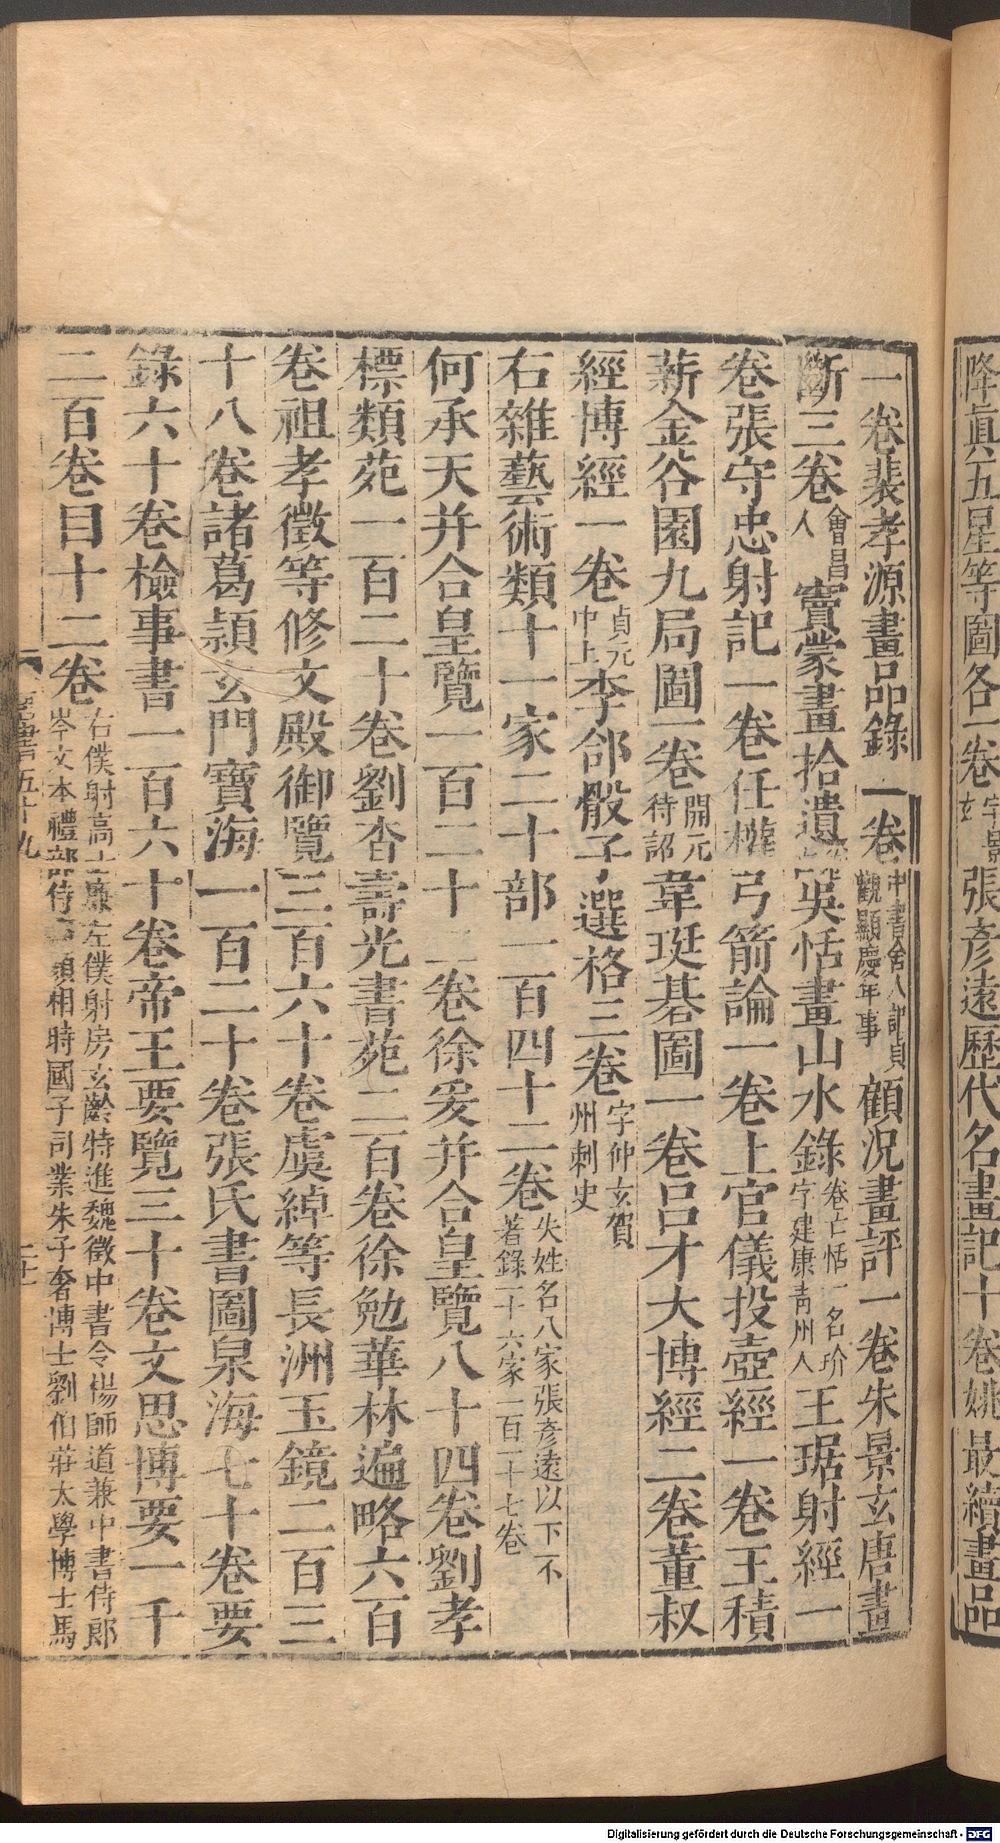 降眞五星等圖各一卷字景玄張彥遠歷代名畫記十卷姚最續畫品
一卷裴孝源畫品錄一卷中書舍人記貞觀顯慶年事顧況畫評一卷朱景玄唐畫
斷三卷會昌人竇蒙畫拾遺吳恬畫山水錄卷亡恬一名玢字建康靑州人王琚射經一
卷張守忠射記一卷任權弓箭論一卷上官儀投壺經一卷王積
薪金谷園九局圖一卷開元待詔韋珽棊圖一卷呂才大博經二卷董叔
經博經一卷貞元中上李郃骰子選格三卷字仲玄賀州刺史
右雜藝術類十一家二十部一百四十二卷失姓名八家張彥遠以下不著錄一十六家一百一十七卷
何承天并合皇覽一百二十二卷徐爰并合皇覽八十四卷劉孝
標類苑一百二十卷劉杳壽光書苑二百卷徐勉華林遍略六百
卷祖孝徵等修文殿御覽三百六十卷虞綽等長洲玉鏡二百三
十八卷諸葛潁玄門寶海一百二十卷張氏書圖泉海七十卷要
錄六十卷檢事書一百六十卷帝王要覽三十卷文思博要一千
二百卷目十二卷右僕射高士廉左僕射房玄齡特進魏徵中書令楊師道兼中書侍郎岑文本禮部侍郎顏相時國子司業朱子奢博士劉伯莊太學博士馬
五十九
二十一
Digitalisierung gefördert durch die Deutsche Forschungsgemeinschaft - DFG